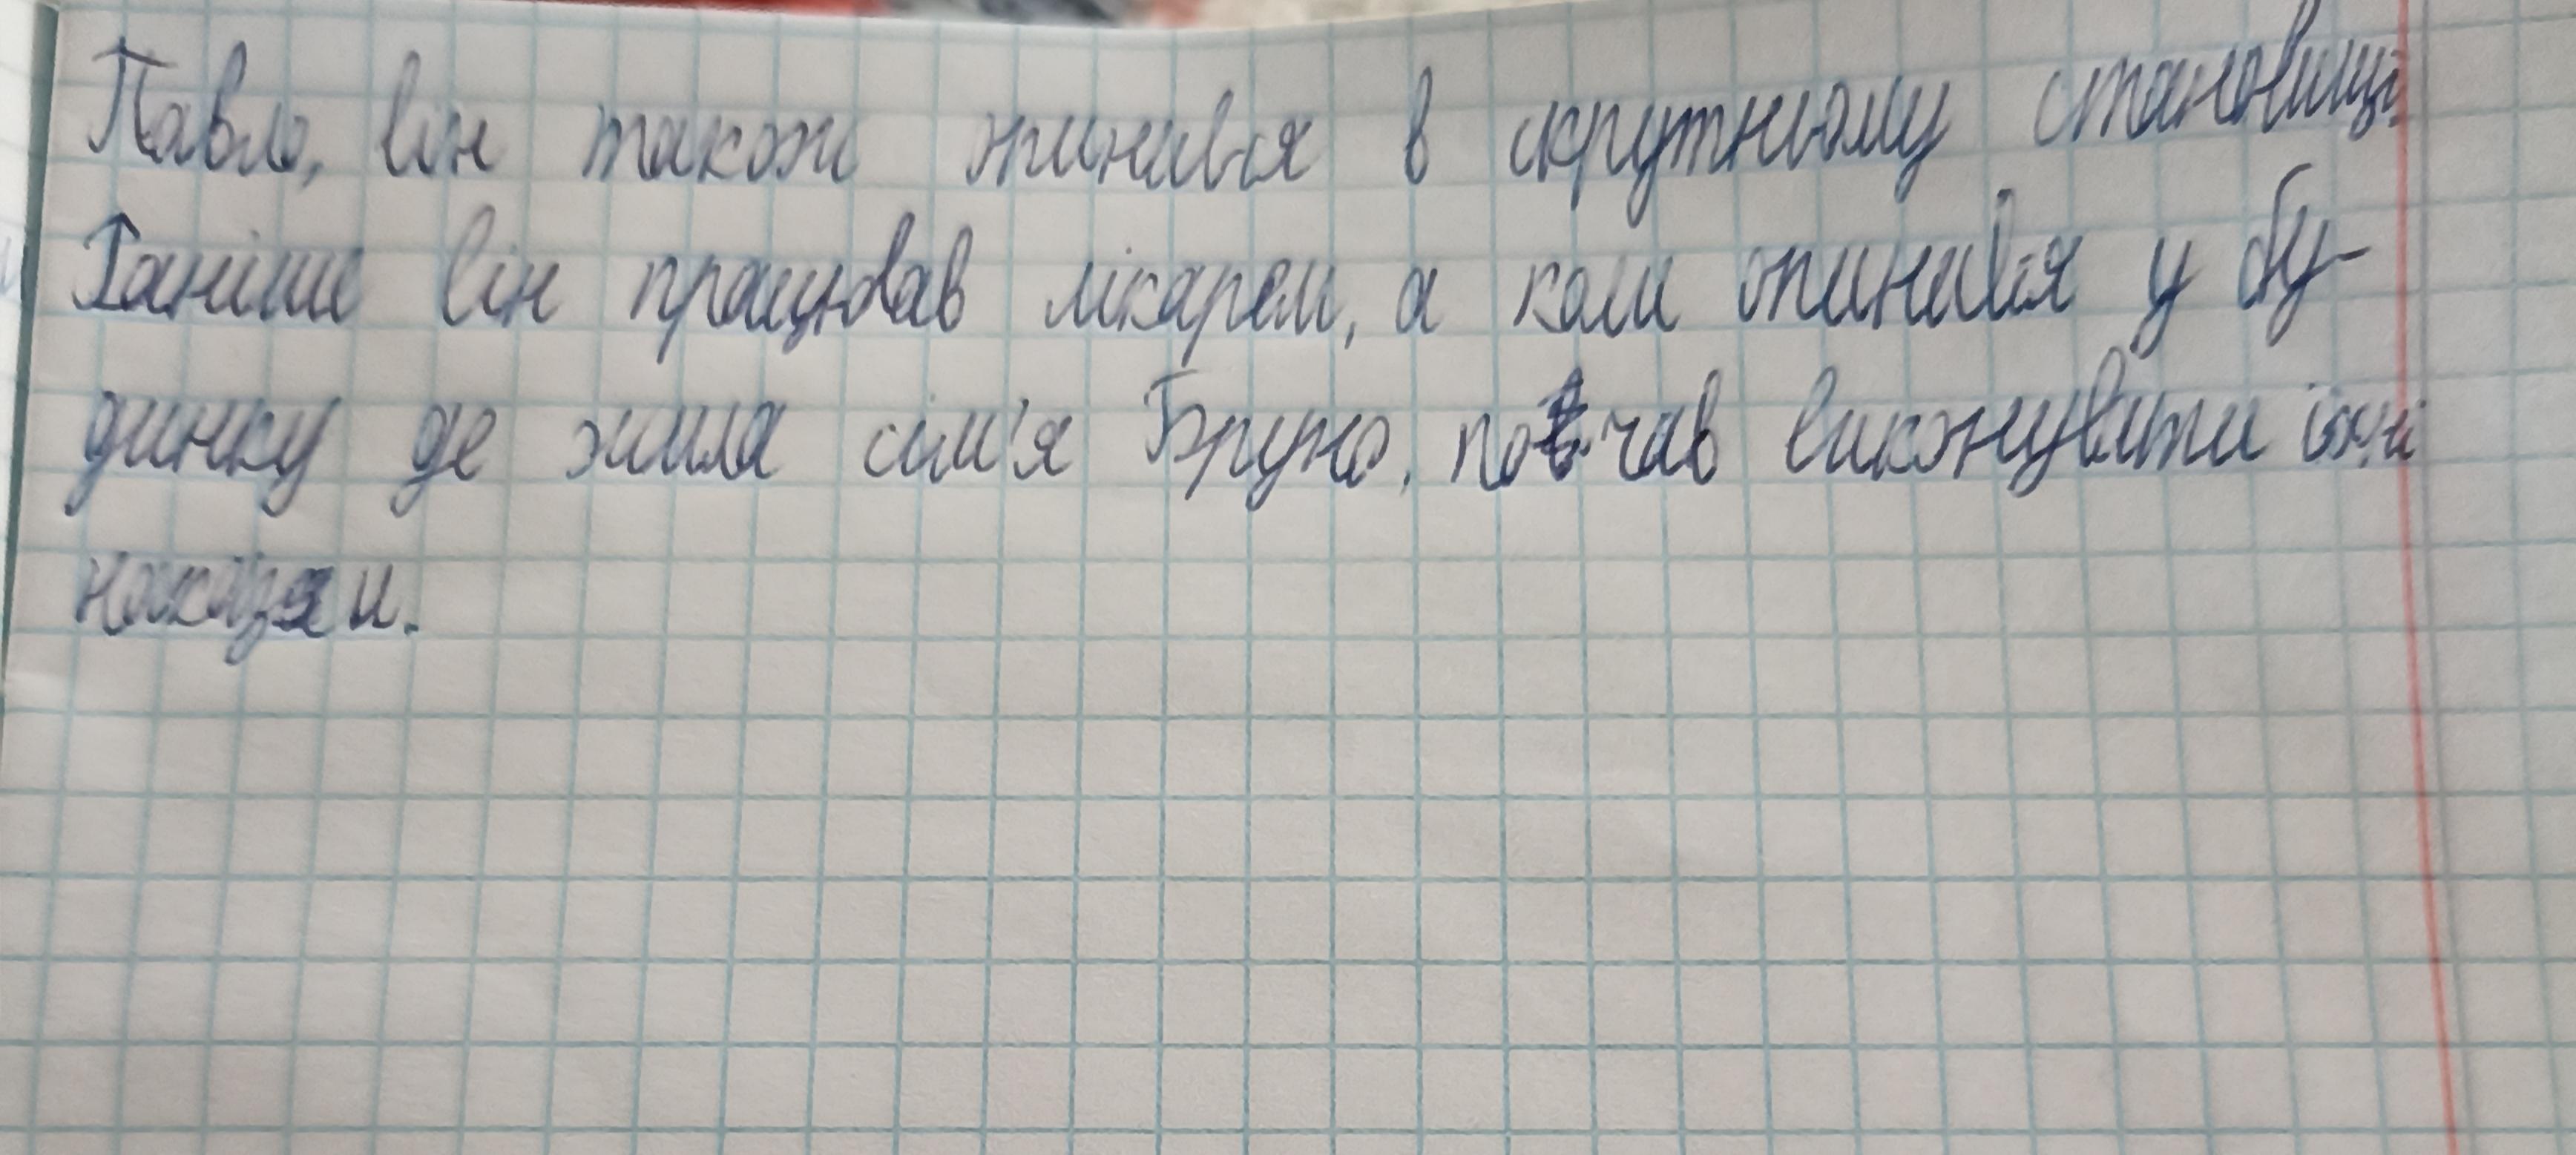 Павло, він також опинився в скрутньому становищі.
Раніше він працював лікарем, а коли опинився у бу-
динку де жила сім'я Бруно, почав виконувати їхні
накази.